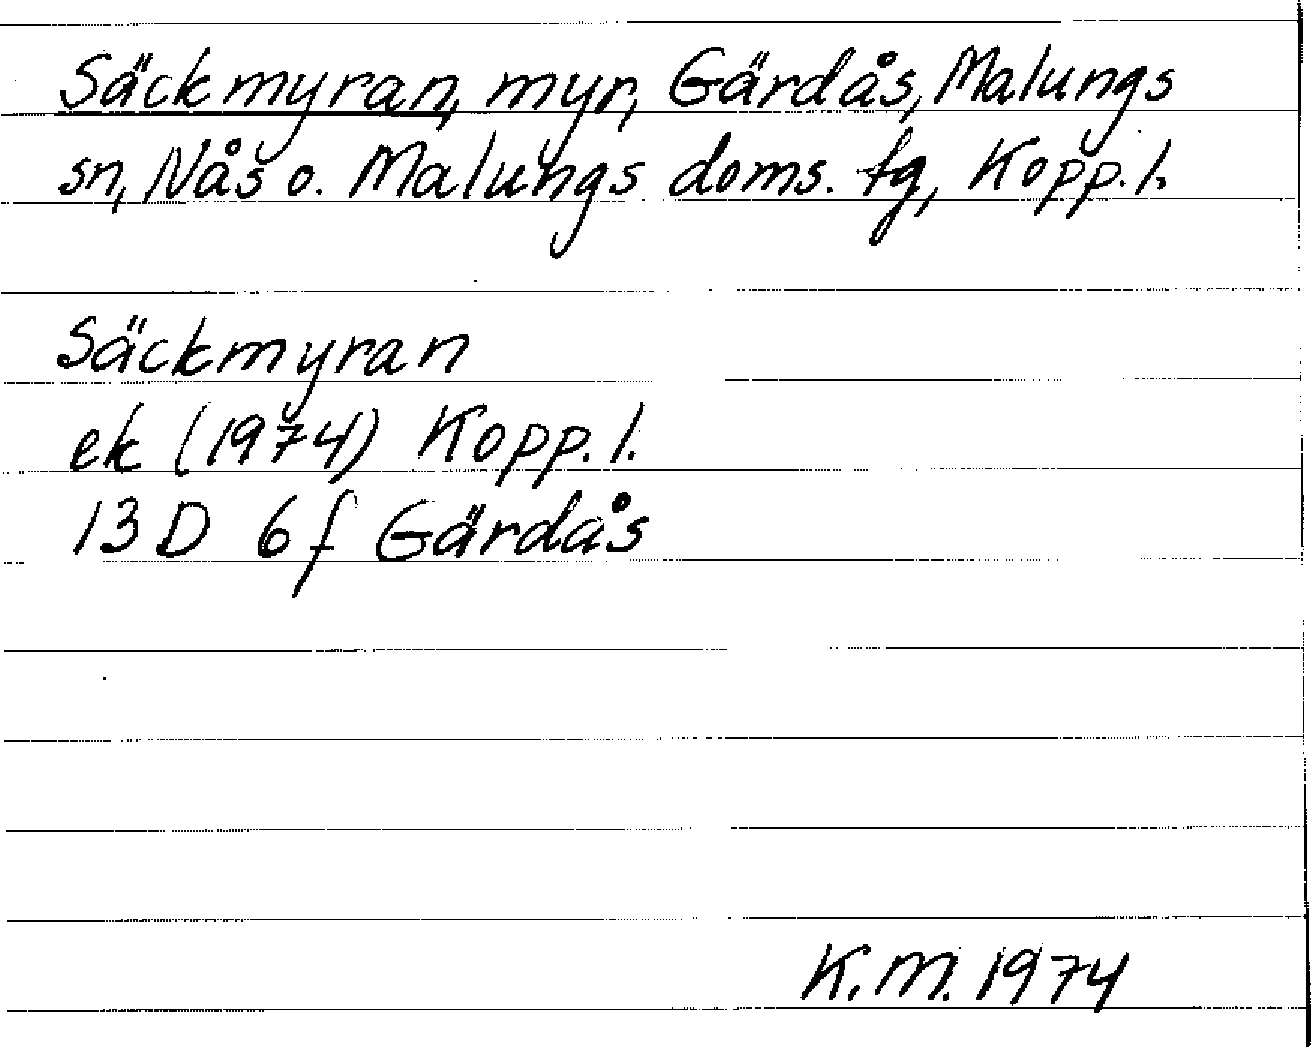 Säckmyran, myr, Gärdås, Malungs
sn, Nås o. Malungs doms. tg, Kopp. l.
Säckmyran
ek (1974) Kopp. l.
13 D 6 f Gärdås
K.M. 1974